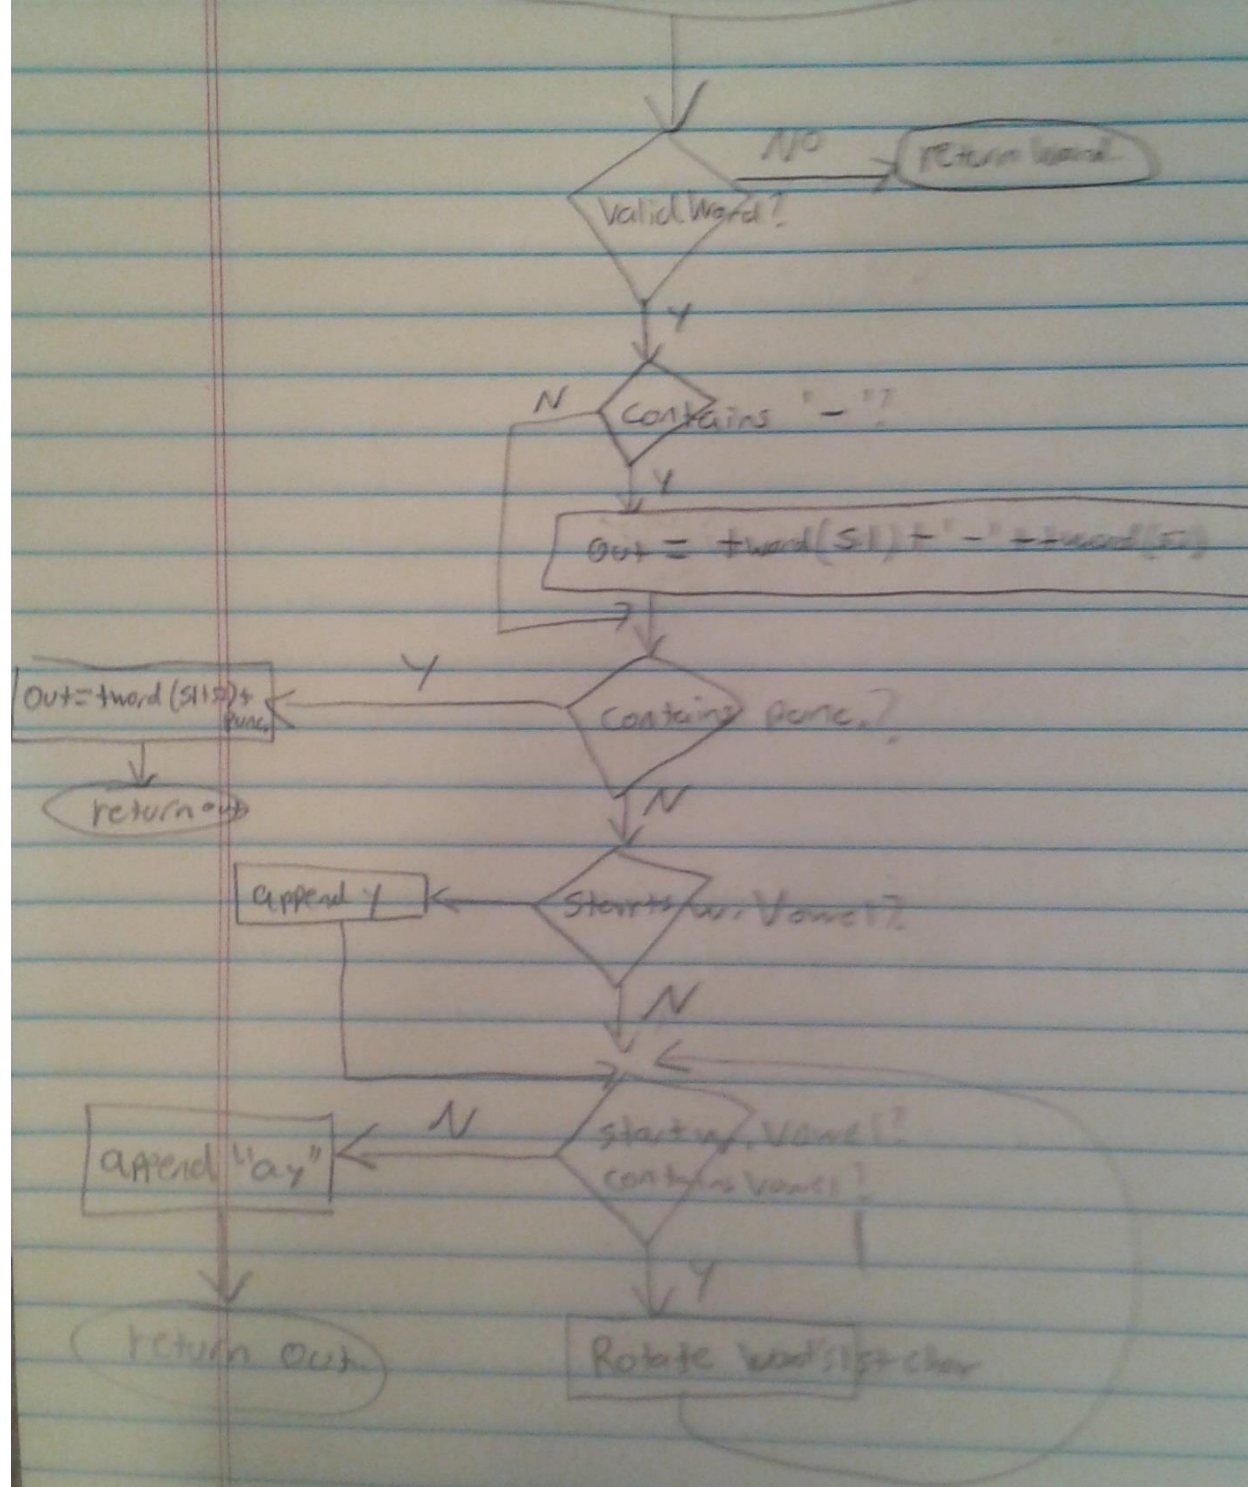 NO
return word
Valid Word?
Y
N
contains "-"?
Y
Out = tword(S1)+"-"+tword(S2)
Y
Out=tword(S1+S2)+
punc.
contains punc.?
return out
N
append y
Starts w. Vowel?
N
N
start w. Vowel?
append "ay"
contains vowel?
Y
return out
Rotate word's 1st char